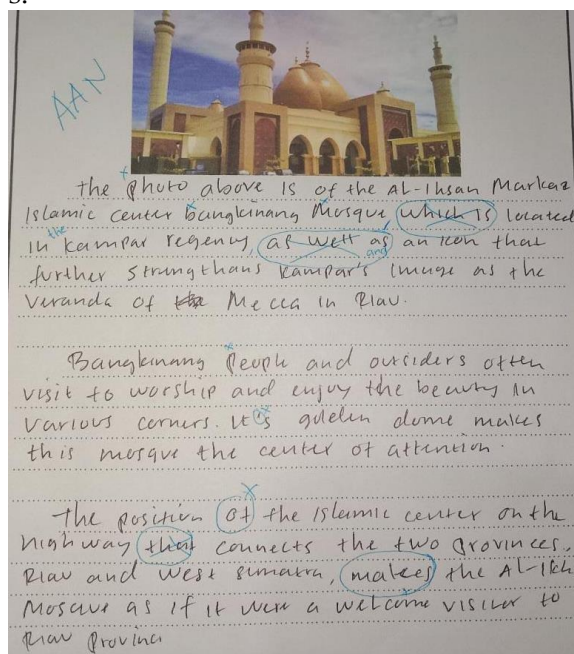 AAN
the photo above is of the Al-Ihsan Markaz
Islamic center bangkinang Mosque which is located
the
in kampar regency, as well as an icon that
and
further strengthans kampar's image as the
veranda of Mecca in Riau.
Bangkinang People and outsiders often
visit to worship and enjoy the beauty in
various corners. It's golden dome makes
this mosque the center of attention.
The position of the Islamic center on the
highway that connects the two provinces,
Riau and West sumatra, makes the Al-Ikh
Mosque as if it were a welcome visitor to
Riau Provinci